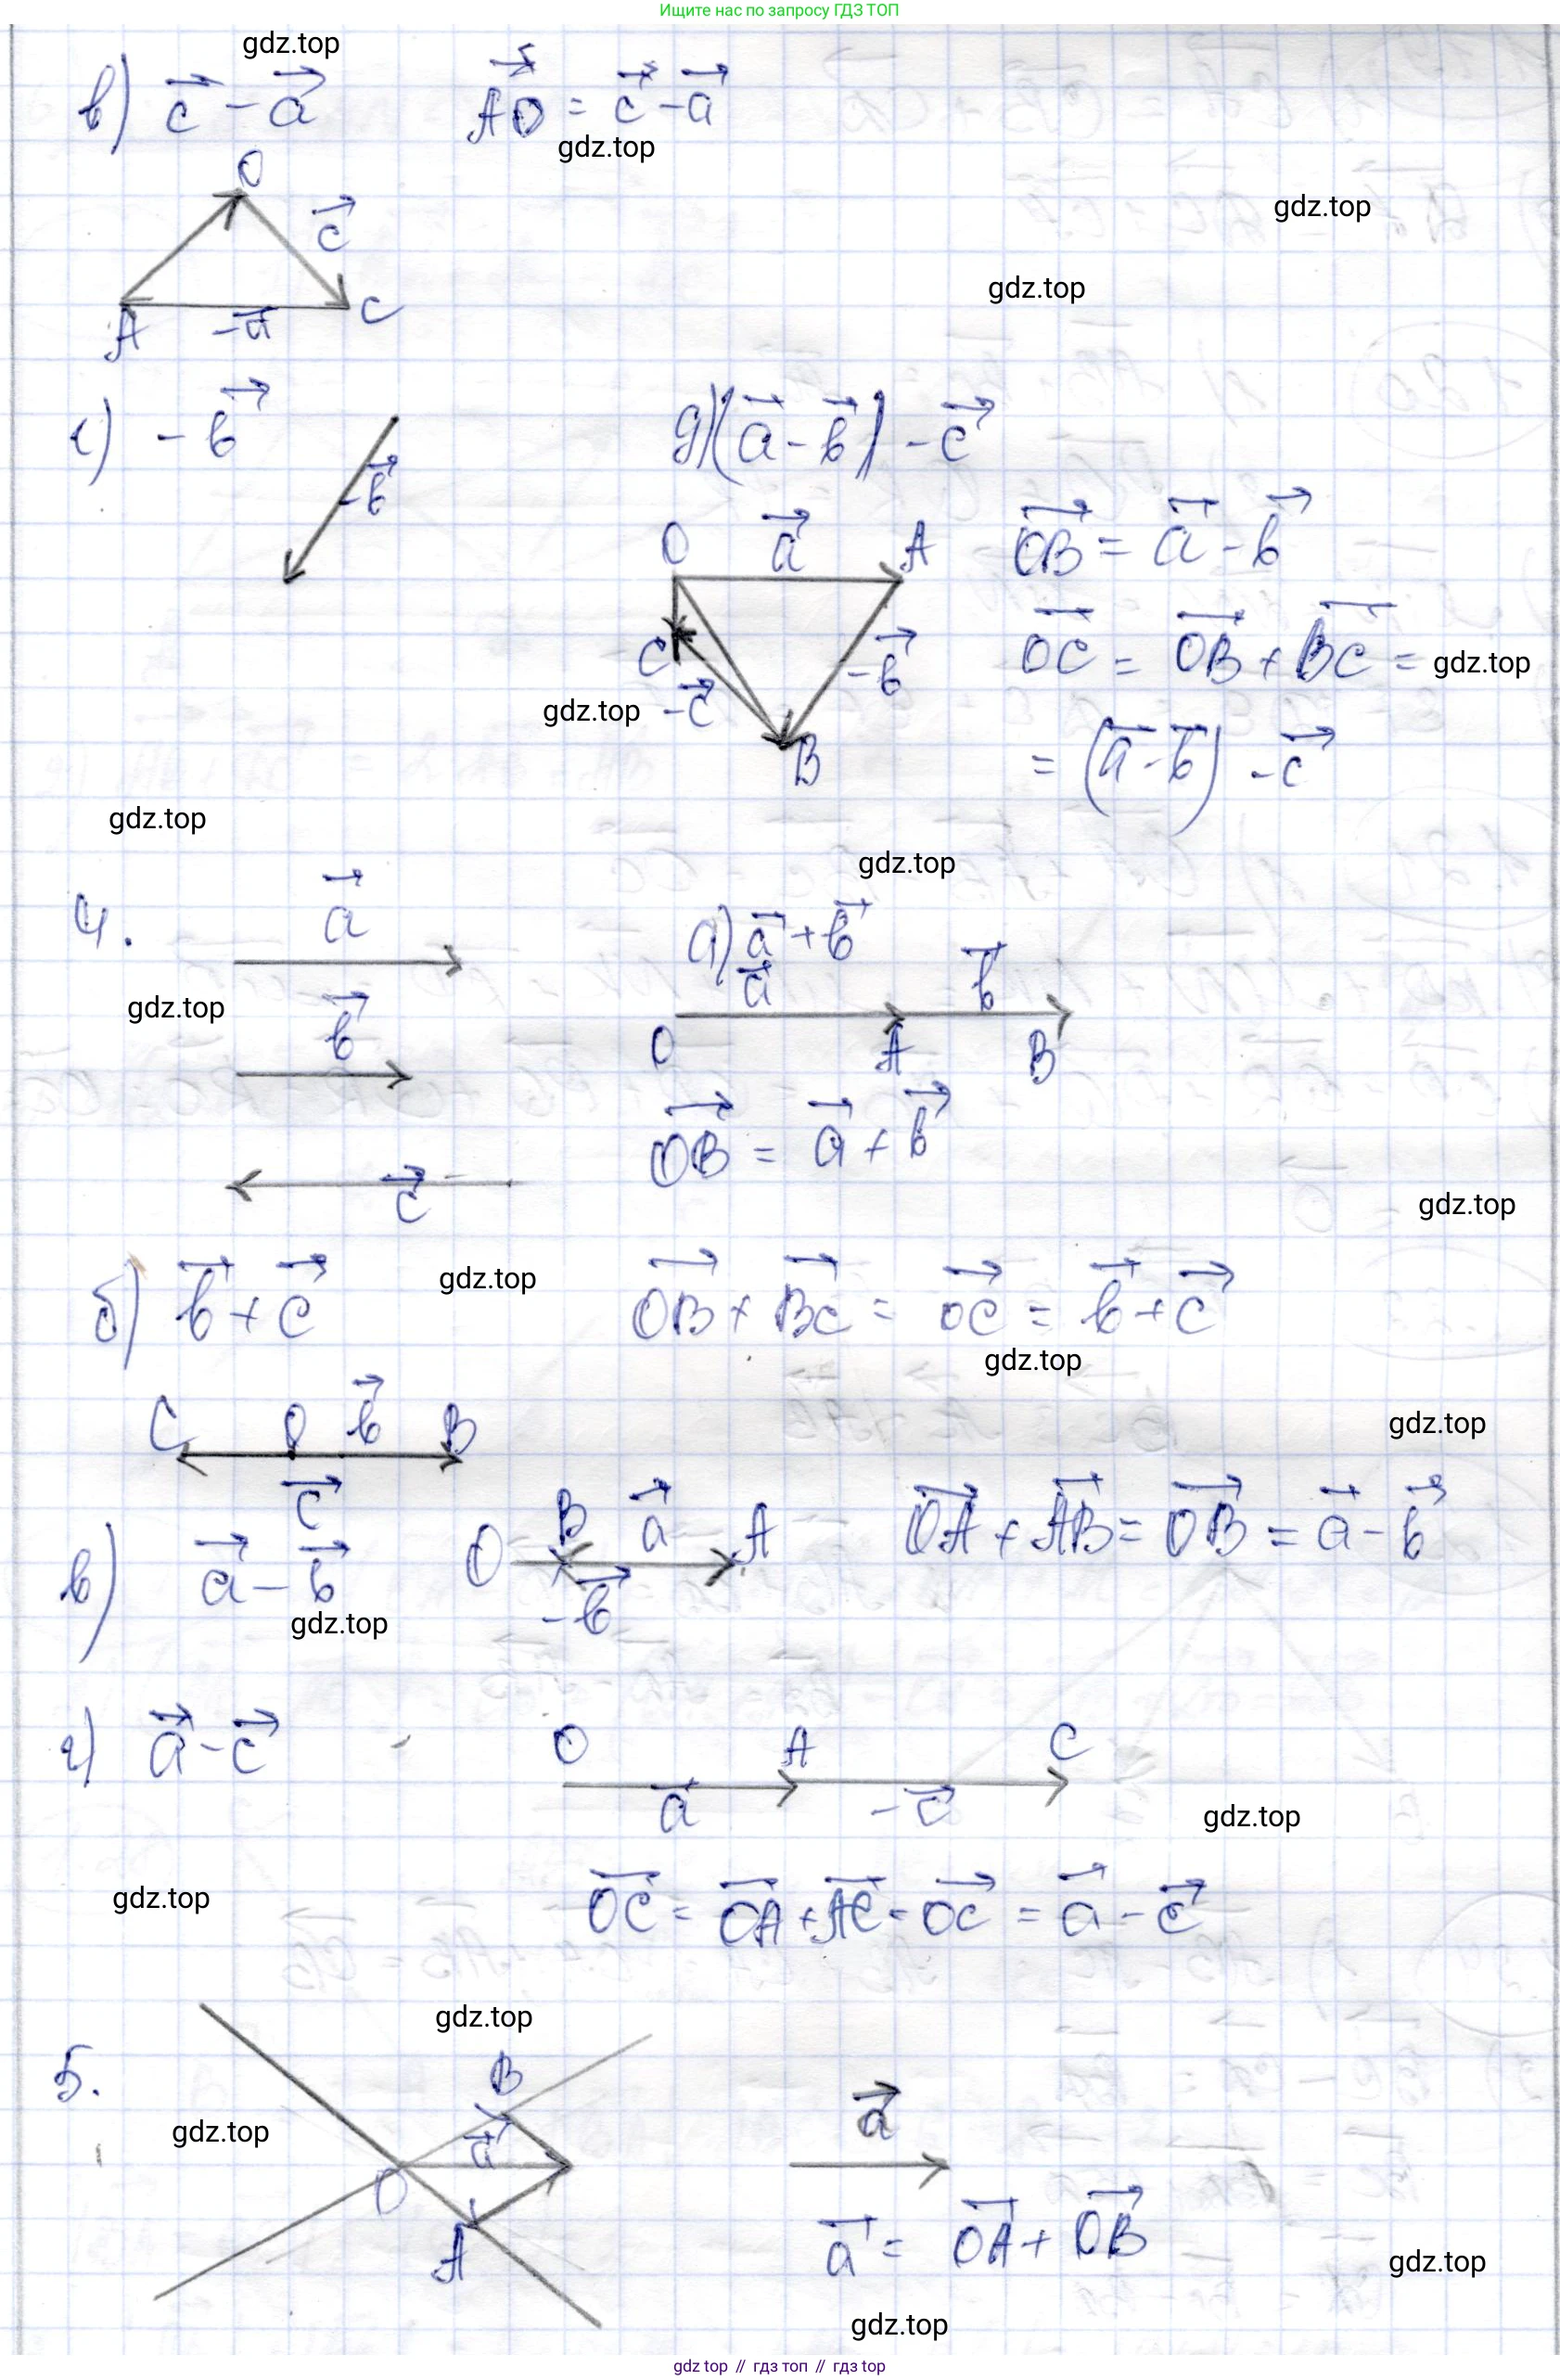 Ищите нас по запросу ГДЗ ТОП
gdz.top
в) c⃗ - a⃗ AO⃗ = c⃗ - a⃗
gdz.top
O
c⃗
gdz.top
gdz.top
A -a⃗ C
г) -b⃗
-b⃗
д) (a⃗ - b⃗) - c⃗
O a⃗ A OB⃗ = a⃗ - b⃗
C -b⃗ OC⃗ = OB⃗ + BC⃗ = gdz.top
gdz.top -c⃗
B = (a⃗ - b⃗) - c⃗
gdz.top
gdz.top
4. a⃗ а) a⃗ + b⃗
gdz.top
a⃗ b⃗
b⃗
O A B
OB⃗ = a⃗ + b⃗
c⃗
gdz.top
gdz.top
б) b⃗ + c⃗ OB⃗ + BC⃗ = OC⃗ = b⃗ + c⃗
gdz.top
C O b⃗ B
gdz.top
c⃗
в) a⃗ - b⃗ O B a⃗ A OA⃗ + AB⃗ = OB⃗ = a⃗ - b⃗
-b⃗
gdz.top
г) a⃗ - c⃗ O A C
a⃗ -c⃗
gdz.top
gdz.top
OC⃗ = OA⃗ + AC⃗ = OC⃗ = a⃗ - c⃗
gdz.top
5. B
gdz.top
a⃗ a⃗
O
A a⃗ = OA⃗ + OB⃗
gdz.top
gdz.top
gdz top // гдз топ // гдз top